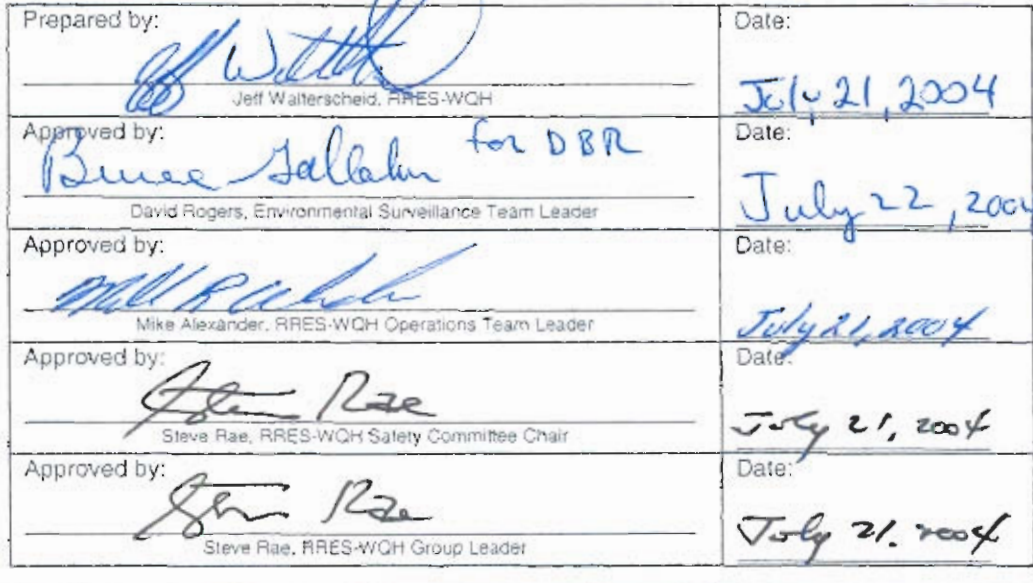 Prepared by:
Date:
Jeff Walterscheid, RRES-WQH
July 21, 2004
Approved by:
Date:
Bruce Gallaher for DBR
David Rogers, Environmental Surveillance Team Leader
July 22, 2004
Approved by:
Date:
Mike Alexander, RRES-WQH Operations Team Leader
July 21, 2004
Approved by:
Date:
Steve Rae
Steve Rae, RRES-WQH Safety Committee Chair
July 21, 2004
Approved by:
Date:
Steve Rae
Steve Rae, RRES-WQH Group Leader
July 21, 2004